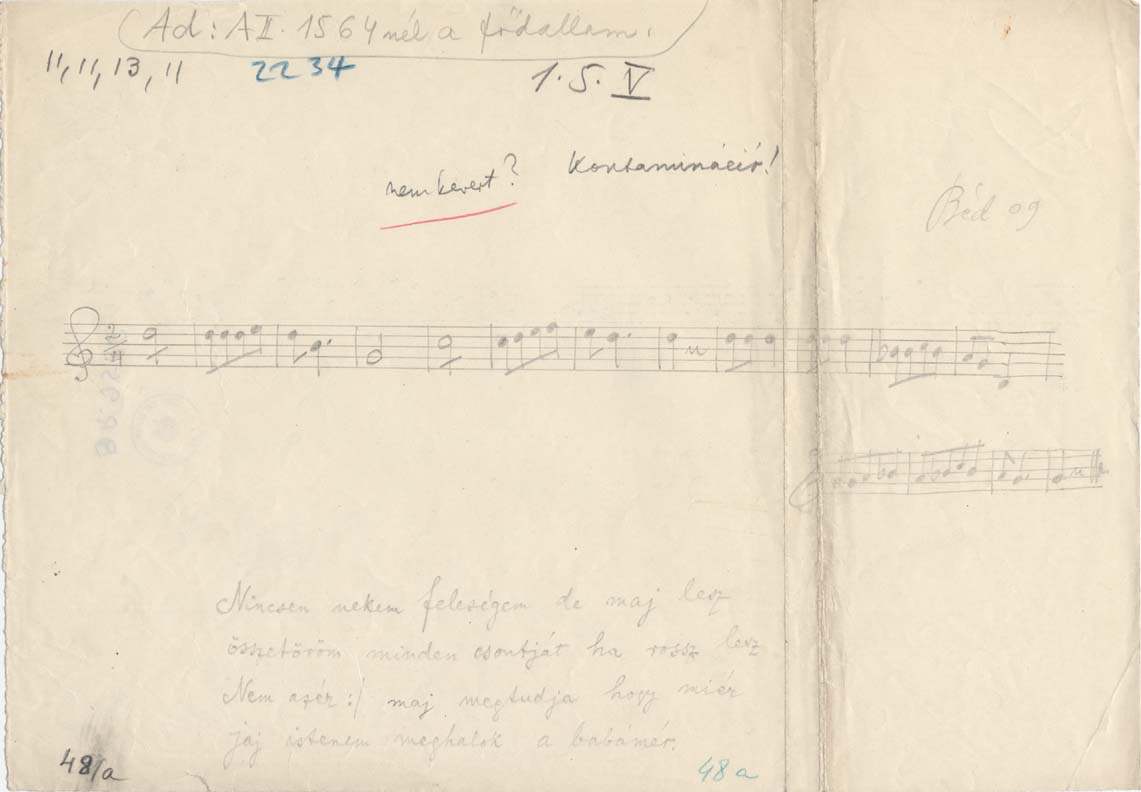 Ad: AII. 1564 nél a fődallam.
11, 11, 13, 11 2234 1. 5. V
nem kevert? Kontamináció!
Béd 09
2
4
Nincsen nekem feleségem de maj lesz
összetöröm minden csontját ha rossz lesz
Nem azér :/ maj megtudja hogy miér
jaj istenem meghalok a babámér.
48/a 48 a